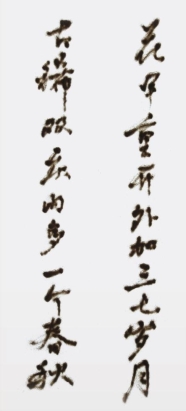 花甲重开外加三七岁月
古稀双庆内多一个春秋